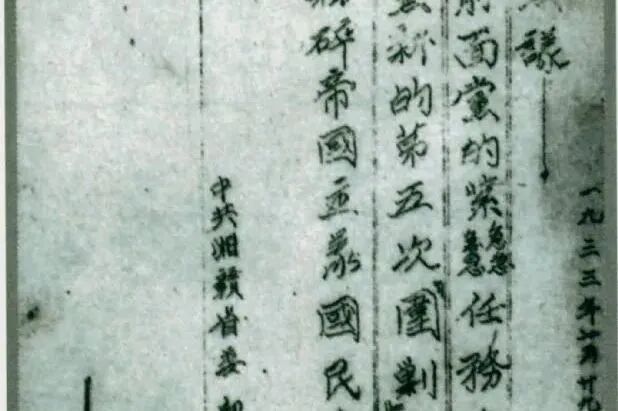 一九三三年七月廿九
議
前面黨的緊急任務
新的第五次圍剿
粉碎帝國主義國民
中共湘贛省委